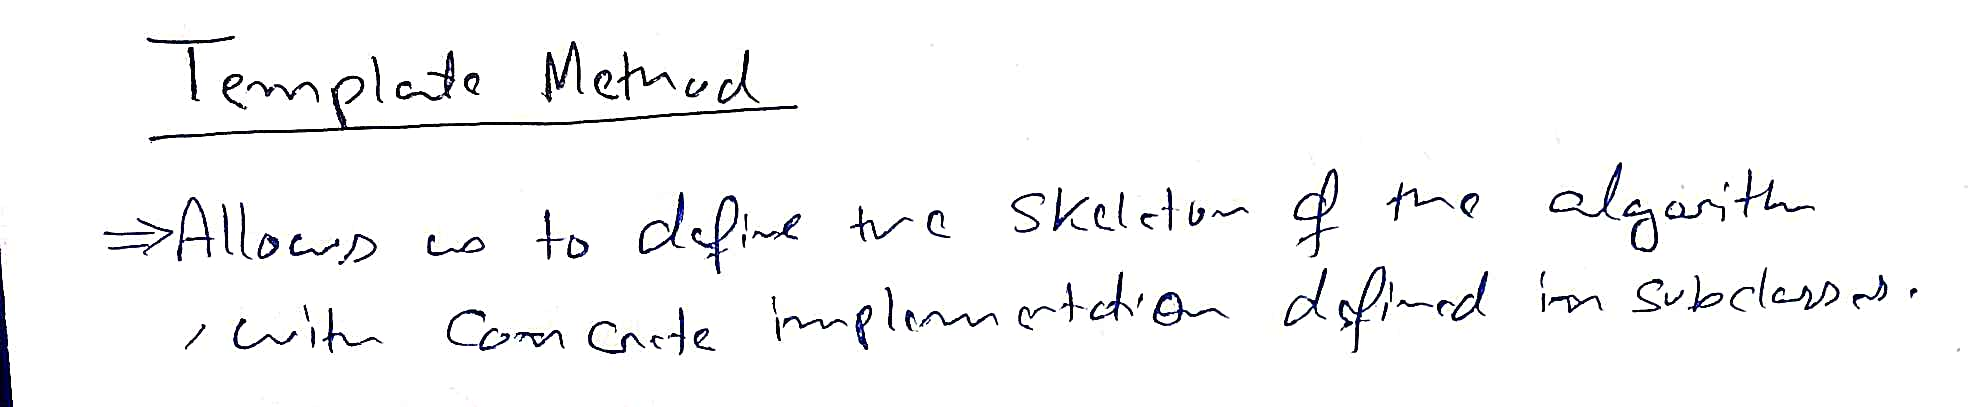 Template Method
⇒ Allows us to define the skeleton of the algorithm
, with concrete implementation defined in subclasses.